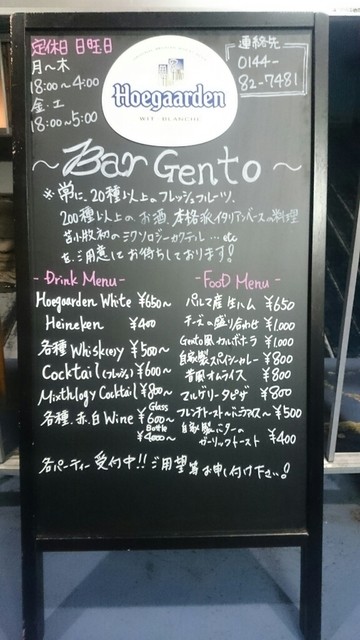 定休日 日曜日
月〜木
18:00〜4:00
金・土
18:00〜5:00
Hoegaarden
WIT-BLANCHE
連絡先
0144-
82-7481
〜Bar Gento〜
※常に、20種以上のフレッシュフルーツ、
200種以上のお酒、本格派イタリアンベースの料理
苫小牧初のミクソロジーカクテル…etc
を、ご用意してお待ちしております!
- Drink Menu -
Hoegaarden White ¥650〜
Heineken ¥400
各種 Whisk(e)y ¥500〜
Cocktail(フレッシュ) ¥600〜
Mixthlogy Cocktail ¥800〜
各種、赤、白 Wine Glass ¥600〜
Bottle ¥4000〜
- FooD Menu -
パルマ産生ハム ¥650
チーズの盛り合わせ ¥1,000
Gento風カルボナーラ ¥1,000
自家製スパイシーカレー ¥800
昔風オムライス ¥800
マルゲリータピザ ¥800
フレンチトースト ¥500
自家製バターの
ガーリックトースト ¥400
各パーティー受付中!! ご用望等お申し付け下さい!